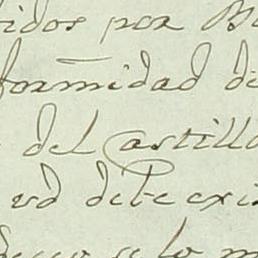 idos por B
formidad de
del Castillo
ud debe exi
se lo m